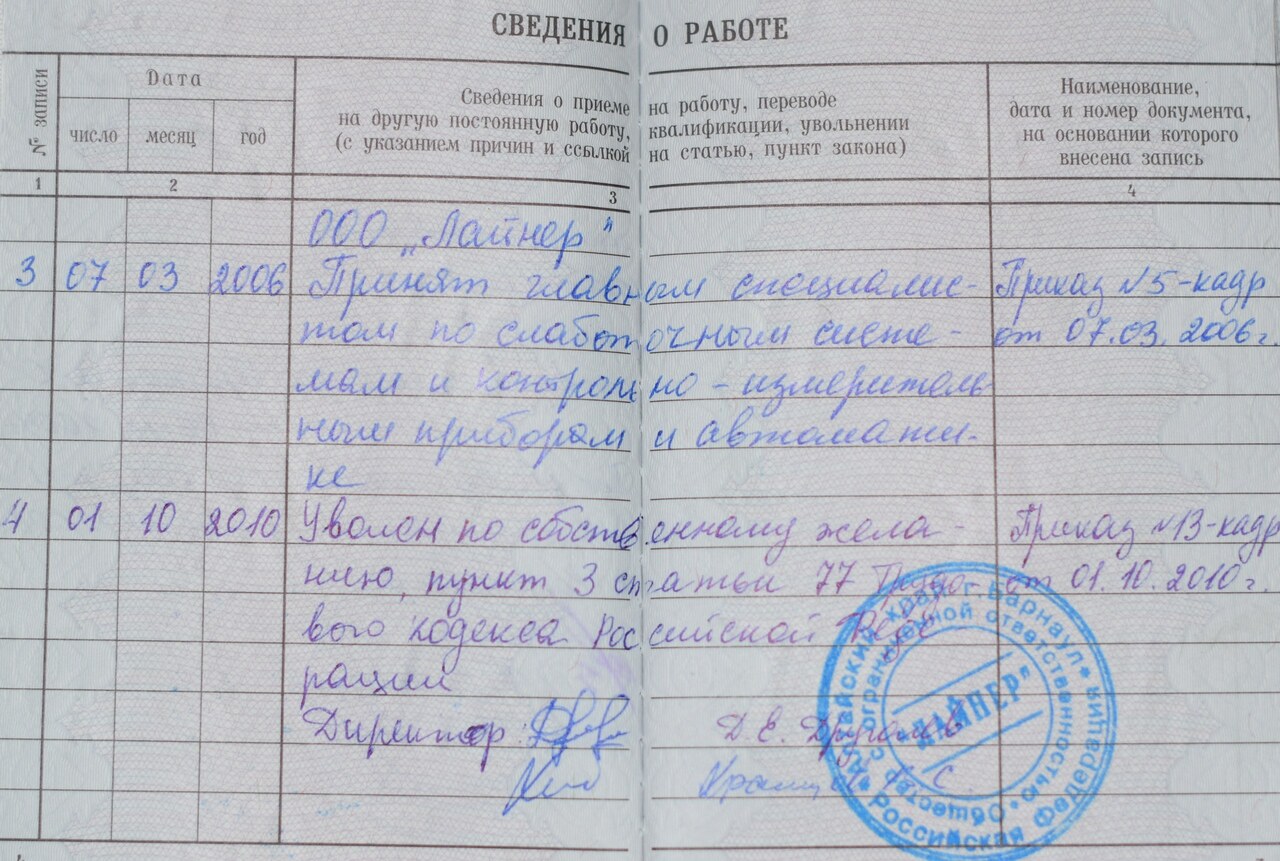 СВЕДЕНИЯ О РАБОТЕ
№ записи
Дата
число месяц год
Сведения о приеме на работу, переводе
на другую постоянную работу, квалификации, увольнении
(с указанием причин и ссылкой на статью, пункт закона)
Наименование,
дата и номер документа,
на основании которого
внесена запись
1 2 3 4
ООО „Лайнер"
3 07 03 2006 Принят главным специалис- Приказ №5-кадр
том по слаботочным систе- от 07.03.2006г.
мам и контрольно-измеритель
ным приборам и автомати-
ке
4 01 10 2010 Уволен по собственному жела- Приказ №13-кадр
нию, пункт 3 статьи 77 Трудо- от 01.10.2010г.
вого кодекса Российской Феде
рации
Директор: Д.Е.
Алтайский край г. Барнаул * Российская Федерация *
Общество с ограниченной ответственностью
"ЛАЙНЕР"